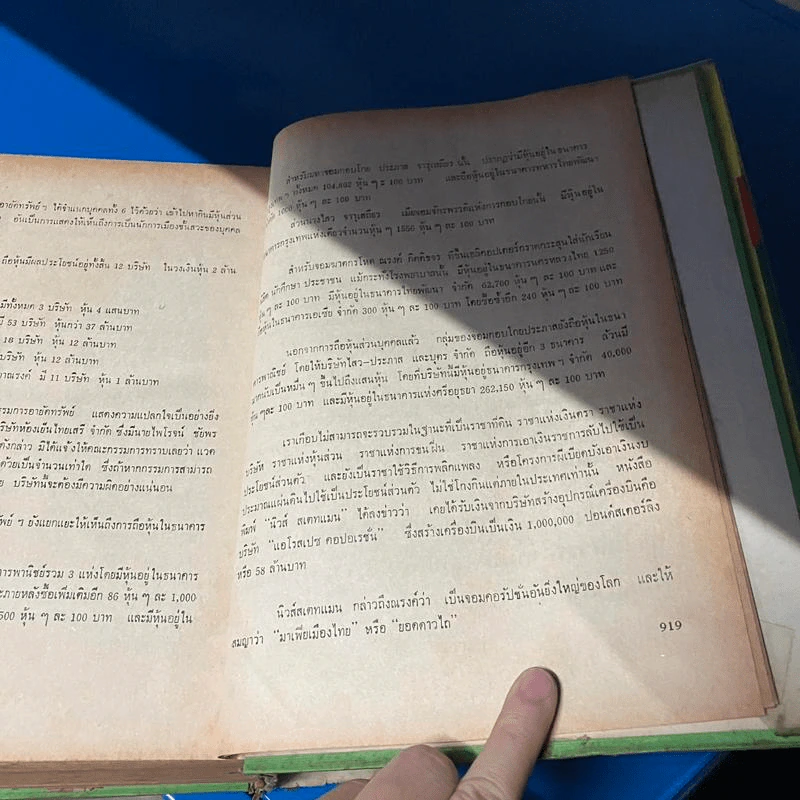 อายัดทรัพย์ฯ ได้จำแนกบุคคลทั้ง 6 ไว้ด้วยว่า เข้าไปหากินมีหุ้นส่วน
อันเป็นการแสดงให้เห็นถึงการเป็นนักการเมืองชั้นสวะของบุคคล
ถือหุ้นมีผลประโยชน์อยู่ทั้งสิ้น 12 บริษัท ในวงเงินหุ้น 2 ล้าน
มีทั้งหมด 3 บริษัท หุ้น 4 แสนบาท
มี 53 บริษัท หุ้นกว่า 37 ล้านบาท
18 บริษัท หุ้น 12 ล้านบาท
บริษัท หุ้น 12 ล้านบาท
ณรงค์ มี 11 บริษัท หุ้น 1 ล้านบาท
กรรมการอายัดทรัพย์ แสดงความแปลกใจเป็นอย่างยิ่ง
บริษัทห้องเย็นไทยเสรี จำกัด ซึ่งมีนายไพโรจน์ ชัยพร
ดังกล่าว มิได้แจ้งให้คณะกรรมการทราบเลยว่า แวด
ด้วยเป็นจำนวนเท่าใด ซึ่งถ้าหากกรรมการสามารถ
บริษัทนี้จะต้องมีความผิดอย่างแน่นอน
ทรัพย์ ฯ ยังแยกแยะให้เห็นถึงการถือหุ้นในธนาคาร
การพานิชย์รวม 3 แห่งโดยมีหุ้นอยู่ในธนาคาร
ภายหลังซื้อเพิ่มเติมอีก 86 หุ้น ๆ ละ 1,000
500 หุ้น ๆ ละ 100 บาท และมีหุ้นอยู่ใน
สำหรับมหาจอมกอบโกย ประภาส จารุเสถียร นั้น ปรากฏว่ามีหุ้นอยู่ในธนาคาร
ทั้งหมด 104,692 หุ้น ๆ ละ 100 บาท และถือหุ้นอยู่ในธนาคารทหารไทยพัฒนา
1000 หุ้น ๆ ละ 100 บาท
ส่วนนางไสว จารุเสถียร เมียจอมจักรพรรดิแห่งการกอบโกยนั้น มีหุ้นอยู่ใน
ธนาคารกรุงเทพแห่งเดียวจำนวนหุ้น ๆ 1556 หุ้น ๆ ละ 100 บาท
สำหรับจอมฆาตกรโหด ณรงค์ กิตติขจร ที่ขึ้นเฮลิคอปเตอร์กราดกระสุนใส่นักเรียน
นิสิต นักศึกษา ประชาชน แม้กระทั่งโรงพยาบาลนั้น มีหุ้นอยู่ในธนาคารนครหลวงไทย 1250
หุ้น ๆ ละ 100 บาท มีหุ้นอยู่ในธนาคารไทยพัฒนา จำกัด 62,700 หุ้น ๆ ละ 100 บาท และ
หุ้นในธนาคารเอเซีย จำกัด 300 หุ้น ๆ ละ 100 บาท โดยซื้อซ้ำอีก 240 หุ้น ๆ ละ 100 บาท
นอกจากการถือหุ้นส่วนบุคคลแล้ว กลุ่มของจอมกอบโกยประภาสยังถือหุ้นในธนา
คารพาณิชย์ โดยให้บริษัทไสว-ประภาส และบุตร จำกัด ถือหุ้นอยู่อีก 3 ธนาคาร ล้วนมี
ขนาดนับเป็นหมื่น ๆ ขึ้นไปถึงแสนหุ้น โดยที่บริษัทนี้มีหุ้นอยู่ธนาคารกรุงเทพ ฯ จำกัด 40,000
หุ้น ๆ ละ 100 บาท และมีหุ้นอยู่ในธนาคารแห่งศรีอยุธยา 262,150 หุ้น ๆ ละ 100 บาท
เราเกือบไม่สามารถจะรวบรวมในฐานะที่เป็นราชาที่ดิน ราชาแห่งเงินตรา ราชาแห่ง
บริษัท ราชาแห่งหุ้นส่วน ราชาแห่งการขนฝิ่น ราชาแห่งการเอาเงินราชการลับไปใช้เป็น
ประโยชน์ส่วนตัว และยังเป็นราชาใช้วิธีการพลิกแพลง หรือโครงการผีเบียดบังเอาเงินงบ
ประมาณแผ่นดินไปใช้เป็นประโยชน์ส่วนตัว ไม่ใช่โกงกินแต่ภายในประเทศเท่านั้น หนังสือ
พิมพ์ “นิวส์ สเตทแมน” ได้ลงข่าวว่า เคยได้รับเงินจากบริษัทสร้างอุปกรณ์เครื่องบินคือ
บริษัท “แอโรสเปซ คอปอเรชั่น” ซึ่งสร้างเครื่องบินเป็นเงิน 1,000,000 ปอนด์สเตอร์ลิง
หรือ 58 ล้านบาท
นิวส์สเตทแมน กล่าวถึงณรงค์ว่า เป็นจอมคอรัปชั่นอันยิ่งใหญ่ของโลก และให้
สมญาว่า “มาเฟียเมืองไทย” หรือ “ยอดดาวไถ”
919